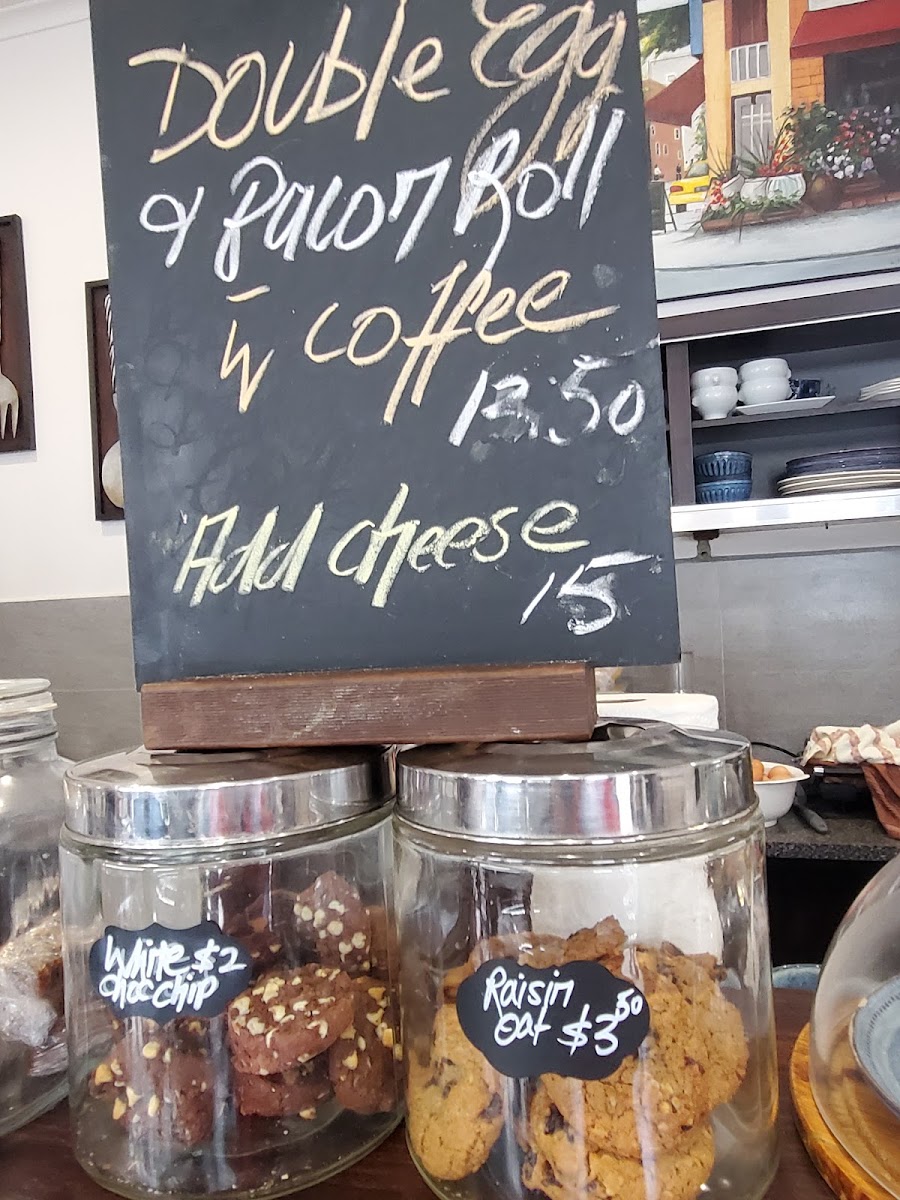 Double Egg
& Bacon Roll
w coffee
13.50
Add cheese
15
White $2
choc chip
Raisin
oat $3.50